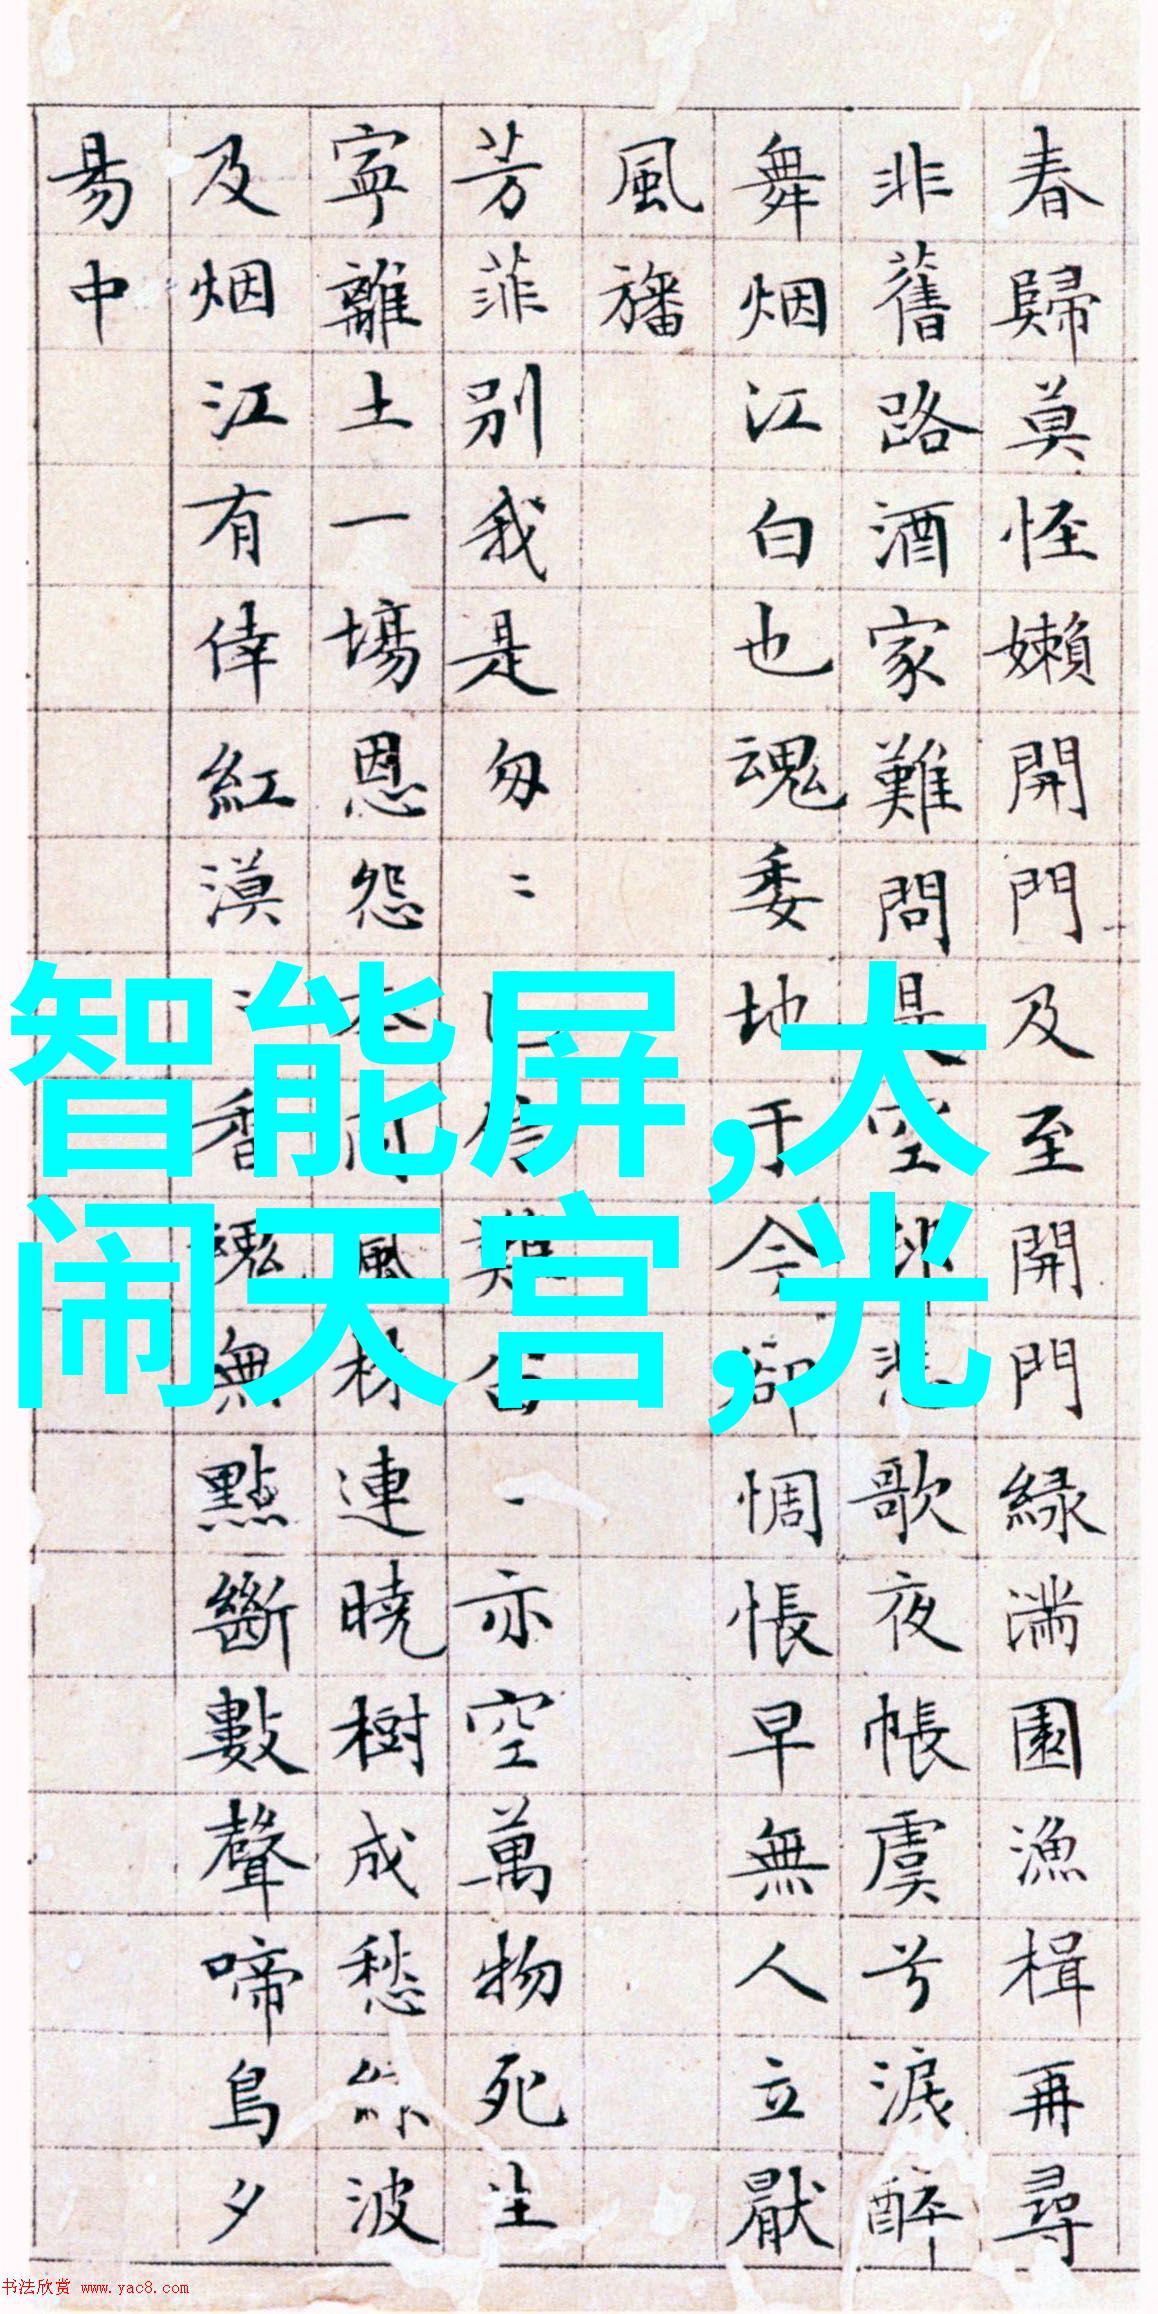 春歸莫怪嬾開門及至開門緑滿園漁楫再尋
非舊路酒家難問是空邨悲歌夜帳虞兮淚醉
舞烟江白也魂委地于今卻惆悵早無人立厭
風旛
芳菲别我是匆〻難亦空萬物死生
寧離土一場恩怨本同風株連曉樹成愁波
及烟江有倖紅漠香魂無點斷數聲啼鳥夕
易中
智能屏,大
闹天宫,光
书法欣赏 www.yac8.com